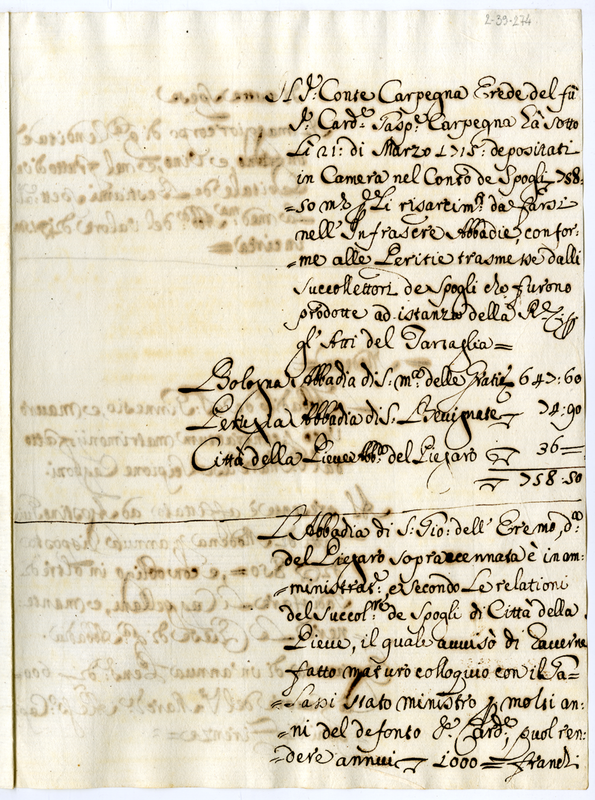 2-39-274
Il Sr. Conte Carpegna Erede del fù
Sr. Card. Gasp. Carpegna hà sotto
li 21: di Marzo 1715: depositati
in Camera nel Conto de Spogli 758:
50 mta per li risarcimti da farsi
nell' Infrascre Abbadie, confor:
=me alle Peritie trasmesse dalli
Succollettori de Spogli che furono
prodotte ad istanza della
gl' Atti del Tartaglia=
Bologna Abbadia di S. Ma. delle Gratie 647:60
Perugia Abbadia di S. Bevignate 74:90
Città della Pieve Abba. del Piegaro 36=
758:50
L'Abbadia di S. Gio: dell' Eremo, da.
del Piegaro sopraccennata è in am:
=ministrate. e secondo le relationi
del Succolre. de Spogli di Città della
Pieve, il quale avvisò di haverne
fatto maturo colloquio con il Ta=
=sassi stato ministro per molti an=
=ni del defonto Sr. Card., puol ren=
=dere annui 1000= franchi